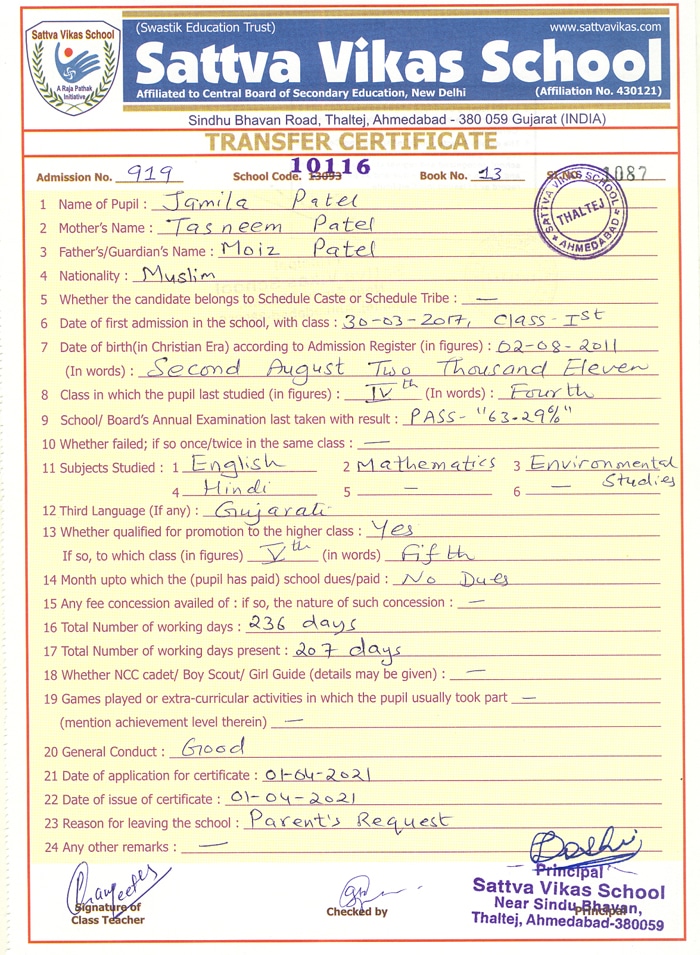 Sattva Vikas School
A Raja Pathak
Initiative
(Swastik Education Trust) www.sattvavikas.com
Sattva Vikas School
Affiliated to Central Board of Secondary Education, New Delhi (Affiliation No. 430121)
Sindhu Bhavan Road, Thaltej, Ahmedabad - 380 059 Gujarat (INDIA)
TRANSFER CERTIFICATE
10116
Admission No. 919 School Code. 13093 Book No. 13 Sl. No. 1087
SATTVA VIKAS SCHOOL
THALTEJ
AHMEDABAD
1 Name of Pupil : Jamila Patel
2 Mother's Name : Tasneem Patel
3 Father's/Guardian's Name : Moiz Patel
4 Nationality : Muslim
5 Whether the candidate belongs to Schedule Caste or Schedule Tribe : —
6 Date of first admission in the school, with class : 30-03-2017, Class - Ist
7 Date of birth(in Christian Era) according to Admission Register (in figures) : 02-08-2011
(In words) : Second August Two Thousand Eleven
8 Class in which the pupil last studied (in figures) : IVth (In words) : Fourth
9 School/ Board's Annual Examination last taken with result : PASS- "63.29%"
10 Whether failed; if so once/twice in the same class : —
11 Subjects Studied : 1 English 2 Mathematics 3 Environmental Studies
4 Hindi 5 — 6 —
12 Third Language (If any) : Gujarati
13 Whether qualified for promotion to the higher class : Yes
If so, to which class (in figures) Vth (in words) Fifth
14 Month upto which the (pupil has paid) school dues/paid : No Dues
15 Any fee concession availed of : if so, the nature of such concession : —
16 Total Number of working days : 236 days
17 Total Number of working days present : 207 days
18 Whether NCC cadet/ Boy Scout/ Girl Guide (details may be given) : —
19 Games played or extra-curricular activities in which the pupil usually took part —
(mention achievement level therein) —
20 General Conduct : Good
21 Date of application for certificate : 01-04-2021
22 Date of issue of certificate : 01-04-2021
23 Reason for leaving the school : Parent's Request
24 Any other remarks : —
Signature of
Class Teacher
Checked by
Principal
Principal
Sattva Vikas School
Near Sindu Bhavan,
Thaltej, Ahmedabad-380059